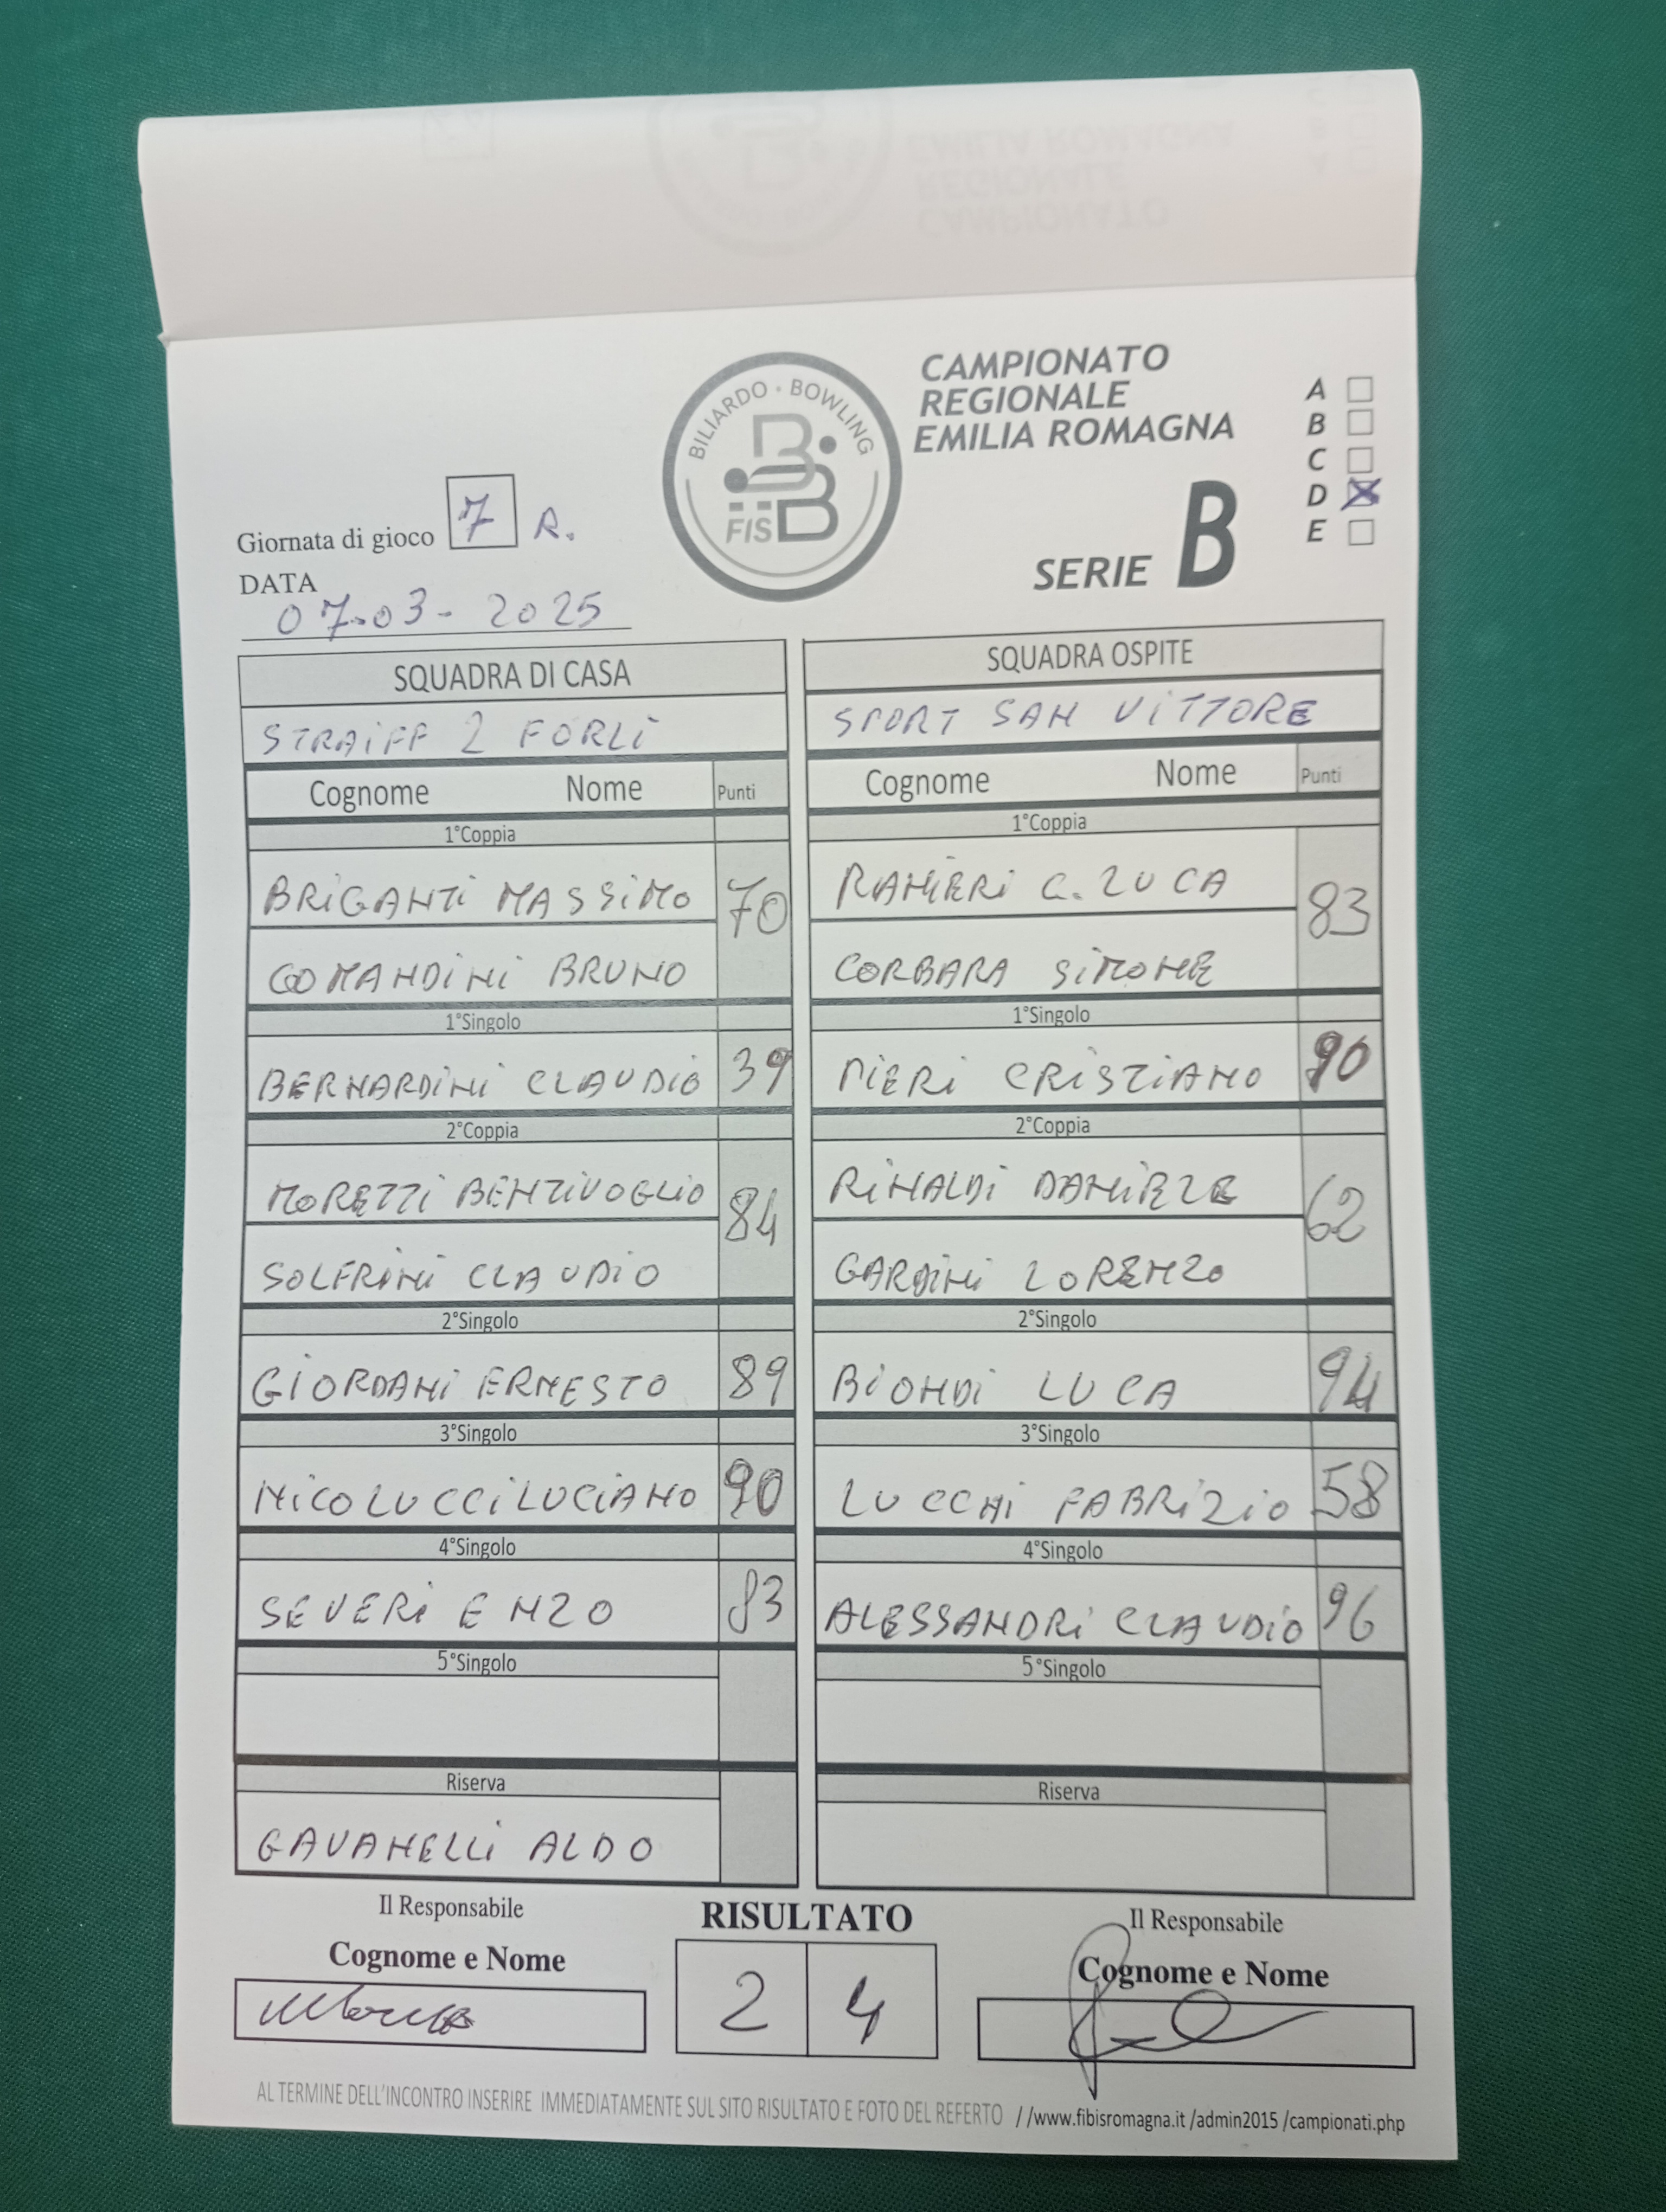 BILIARDO · BOWLING
FISBB
CAMPIONATO
REGIONALE
EMILIA ROMAGNA
SERIE B
A
B
C
D X
E
Giornata di gioco 7 R.
DATA
07-03-2025
SQUADRA DI CASA
STRAIFF 2 FORLI
Cognome Nome Punti
1°Coppia
BRIGANTI MASSIMO 70
COMANDINI BRUNO
1°Singolo
BERNARDINI CLAUDIO 39
2°Coppia
MORETTI BENTIVOGLIO 84
SOLFRINI CLAUDIO
2°Singolo
GIORDANI ERNESTO 89
3°Singolo
NICOLUCCI LUCIANO 90
4°Singolo
SEVERI ENZO 83
5°Singolo
Riserva
GAVANELLI ALDO
SQUADRA OSPITE
SPORT SAN VITTORE
Cognome Nome Punti
1°Coppia
RANIERI G. LUCA 83
CORBARA SIMONE
1°Singolo
PIERI CRISTIANO 90
2°Coppia
RINALDI DANIELE 62
GARDINI LORENZO
2°Singolo
BIONDI LUCA 94
3°Singolo
LUCCHI FABRIZIO 58
4°Singolo
ALESSANDRI CLAUDIO 96
5°Singolo
Riserva
Il Responsabile
Cognome e Nome
RISULTATO
2 4
Il Responsabile
Cognome e Nome
AL TERMINE DELL'INCONTRO INSERIRE IMMEDIATAMENTE SUL SITO RISULTATO E FOTO DEL REFERTO //www.fibisromagna.it /admin2015 /campionati.php